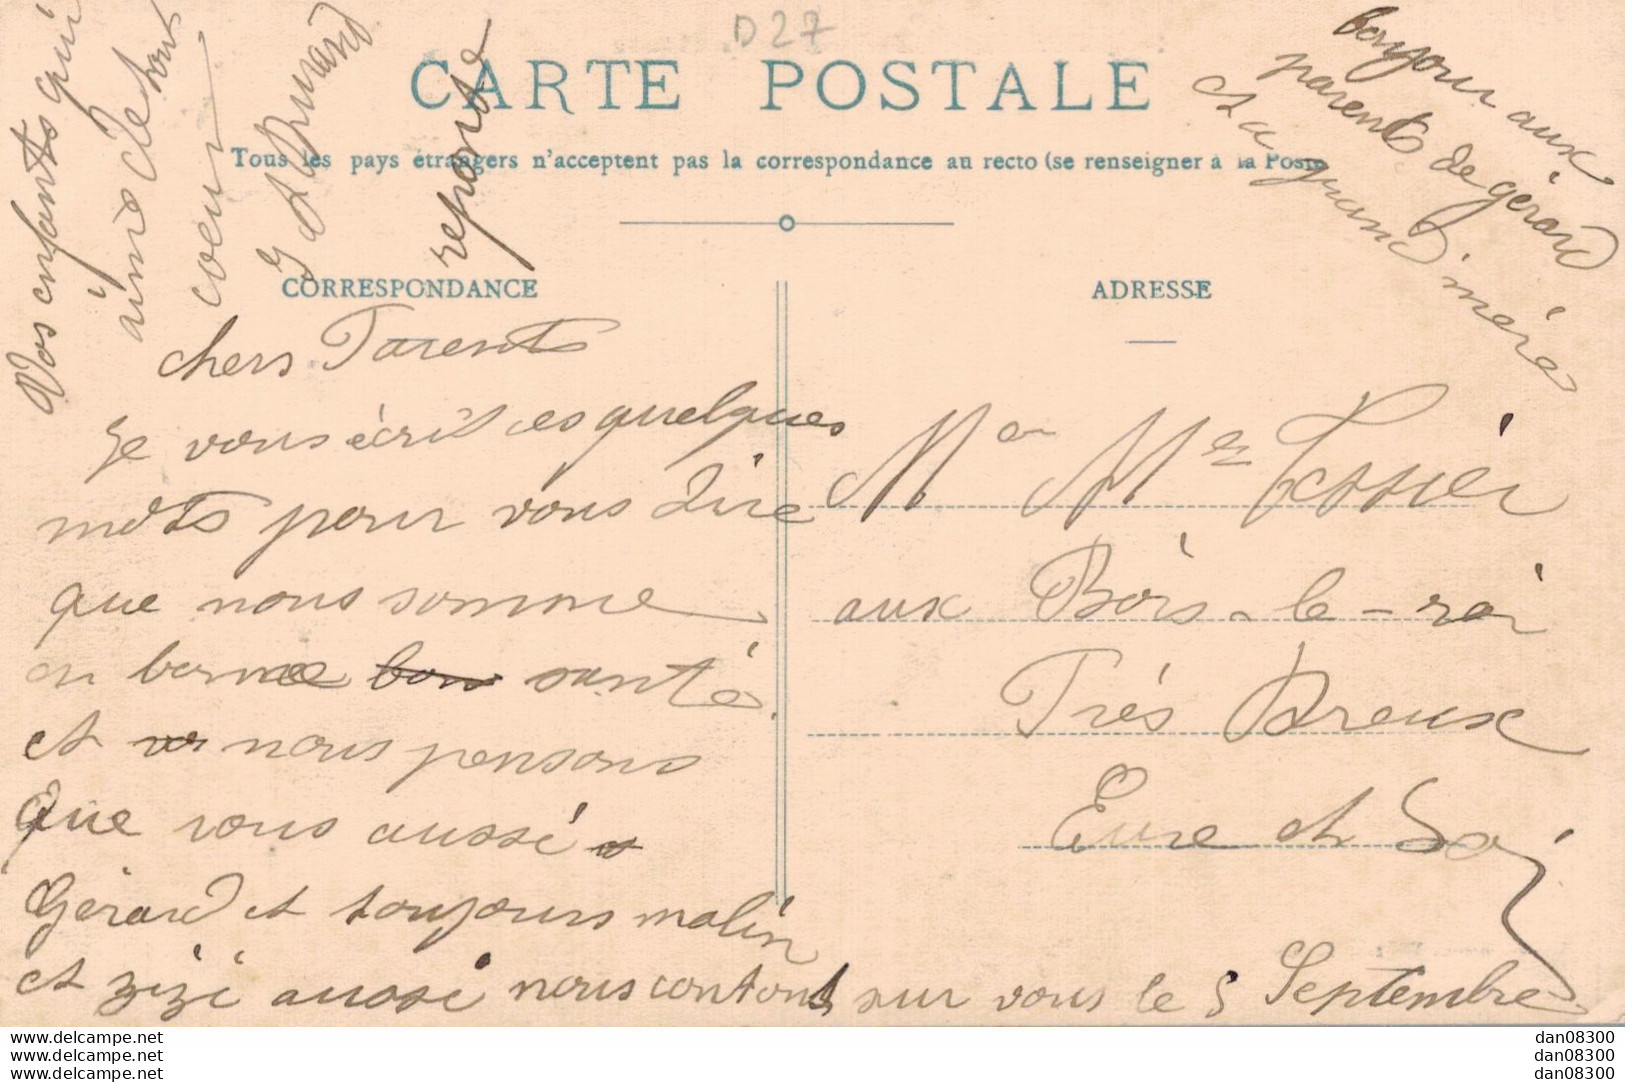 D27
CARTE POSTALE
Tous les pays étrangers n'acceptent pas la correspondance au recto (se renseigner à la Poste
CORRESPONDANCE
ADRESSE
chers Parents
Je vous écrit ces quelques
mots pour vous dire
que nous somme
en bonne bon santé.
et nous pensons
que vous aussé
Gérard et toujours malin
et zizi aussi nous contons sur vous le 5 Septembre
Vos enfants qui
aime de tout
coeur
Armand
reponse
bonjour aux
parents de gérard
et a grand mère
Mr Me Tessier
aux Bois-le-roi
Près Dreux
Eure et Loi
www.delcampe.net
www.delcampe.net
www.delcampe.net
dan08300
dan08300
dan08300